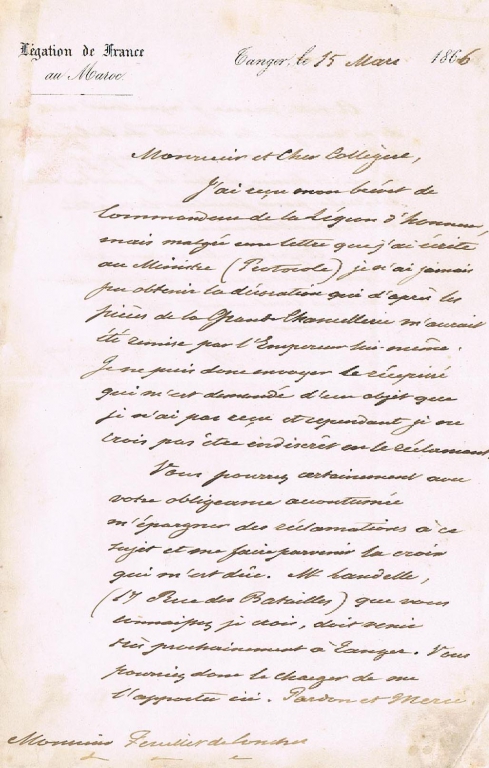 Légation de France
au Maroc.
Tanger, le 15 Mars 1866
Monsieur et Cher Collègue,
J'ai reçu mon brévet de
Commandeur de la Légion d'honneur,
mais malgré une lettre que j'ai écrite
au Ministre (Protocole) je n'ai jamais
pu obtenir la décoration qui d'après les
pièces de la Grande Chancellerie m'aurait
été remise par l'Empereur lui même.
Je ne puis donc envoyer le récépissé
qui m'est demandé d'un objet que
je n'ai pas reçu et cependant je ne
crois pas être indiscrêt en le réclamant.
Vous pourrez certainement avec
votre obligeance accoutumée
m'épargner des réclamations à ce
sujet et me faire parvenir la croix
qui m'est dûe. Mr Landelle,
(17 Rue des Batailles) que vous
connaissez je crois, doit venir
très prochainement à Tanger. Vous
pourriez donc le charger de me
l'apporter ici. Pardon et Merci.
Monsieur Feuillet de Conches